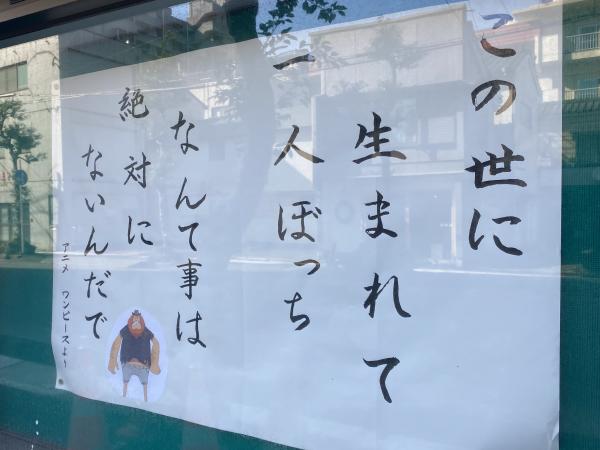 この世に
生まれて
一人ぼっち
なんて事は
絶対に
ないんだで
アニメ ワンピースより